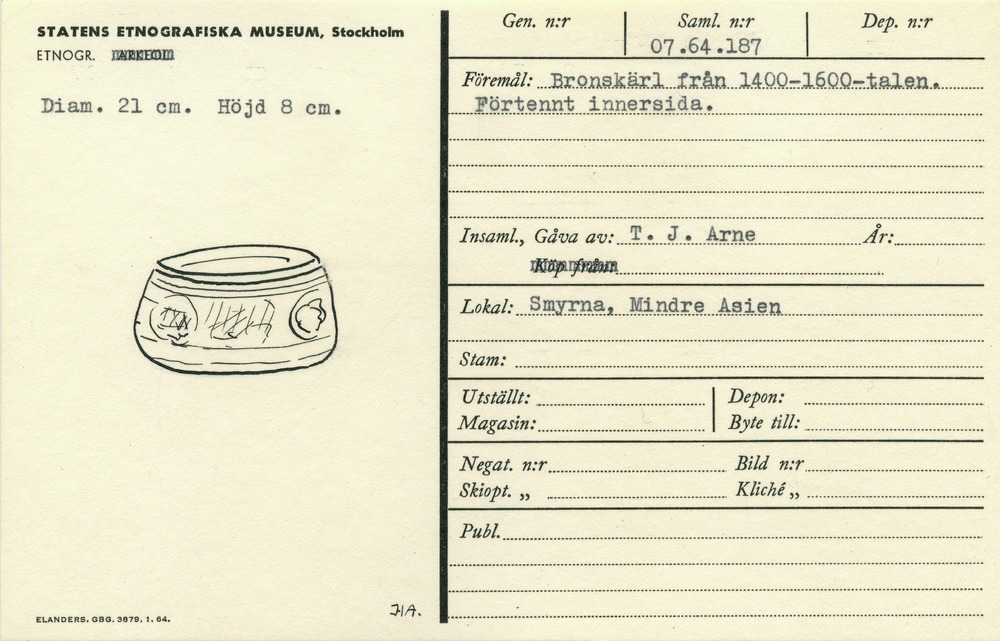 STATENS ETNOGRAFISKA MUSEUM, Stockholm
ETNOGR. ARKEOL.
Diam. 21 cm. Höjd 8 cm.
ELANDERS. GBG. 3879. 1. 64.
HA.
Gen. n:r Saml. n:r Dep. n:r
07.64.187
Föremål: Bronskärl från 1400-1600-talen.
Förtennt innersida.
Insaml., Gåva av: T. J. Arne År:
Köp från:
Lokal: Smyrna, Mindre Asien
Stam:
Utställt: Depon:
Magasin: Byte till:
Negat. n:r Bild n:r
Skiopt. „ Kliché „
Publ.